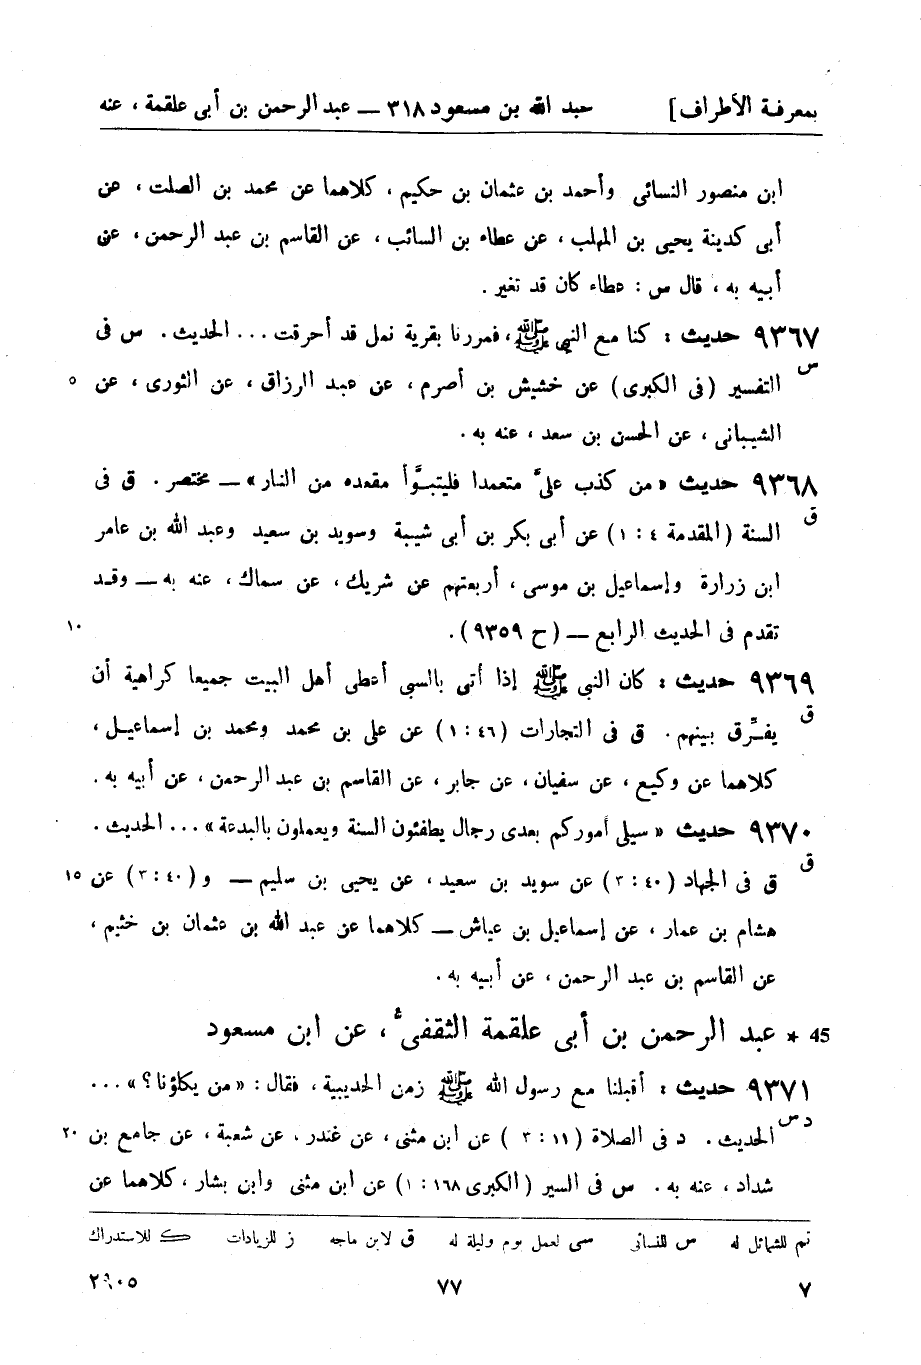 بمعرفة الأطراف] عبد الله بن مسعود ٣١٨ — عبد الرحمن بن أبى علقمة ، عنه
ابن منصور النسائى وأحمد بن عثمان بن حكيم ، كلاهما عن محمد بن الصلت ، عن
أبى كدينة يحيى بن المهلب ، عن عطاء بن السائب ، عن القاسم بن عبد الرحمن ، عن
أبيه به ، قال س : عطاء كان قد تغير .
٩٣٦٧ حديث : كنا مع النبى ﷺ ، فمررنا بقرية نمل قد أحرقت ... الحديث . س فى
س التفسير (فى الكبرى) عن خشيش بن أصرم ، عن عبد الرزاق ، عن الثورى ، عن ٥
الشيبانى ، عن الحسن بن سعد ، عنه به .
٩٣٦٨ حديث « من كذب علىَّ متعمدا فليتبوَّأ مقعده من النار » — مختصر . ق فى
ق السنة (المقدمة ٤ : ١) عن أبى بكر بن أبى شيبة وسويد بن سعيد وعبد الله بن عامر
ابن زرارة وإسماعيل بن موسى ، أربعتهم عن شريك ، عن سماك ، عنه به — وقد
تقدم فى الحديث الرابع — (ح ٩٣٥٩) . ١٠
٩٣٦٩ حديث : كان النبى ﷺ إذا أتى بالسبى أعطى أهل البيت جميعا كراهية أن
ق يفرِّق بينهم . ق فى التجارات (٤٦ : ١) عن على بن محمد ومحمد بن إسماعيل ،
كلاهما عن وكيع ، عن سفيان ، عن جابر ، عن القاسم بن عبد الرحمن ، عن أبيه به .
٩٣٧٠ حديث « سيلى أموركم بعدى رجال يطفئون السنة ويعملون بالبدعة » ... الحديث .
ق ق فى الجهاد (٤٠ : ٣) عن سويد بن سعيد ، عن يحيى بن سليم — و (٤٠ : ٣) عن ١٥
هشام بن عمار ، عن إسماعيل بن عياش — كلاهما عن عبد الله بن عثمان بن خثيم ،
عن القاسم بن عبد الرحمن ، عن أبيه به .
45 * عبد الرحمن بن أبى علقمة الثقفى ، عن ابن مسعود
٩٣٧١ حديث : أقبلنا مع رسول الله ﷺ زمن الحديبية ، فقال : « من يكلؤنا ؟ » ...
د س الحديث . د فى الصلاة (١١ : ٣ ) عن ابن مثنى ، عن غندر ، عن شعبة ، عن جامع بن ٢٠
شداد ، عنه به . س فى السير (الكبرى ١٦٨ : ١) عن ابن مثنى وابن بشار ، كلاهما عن
تم للشمائل له س للنسائى سى لعمل يوم وليلة له ق لابن ماجه ز للزيادات ك للاستدراك
٧ ٧٧ ٢٩٠٥